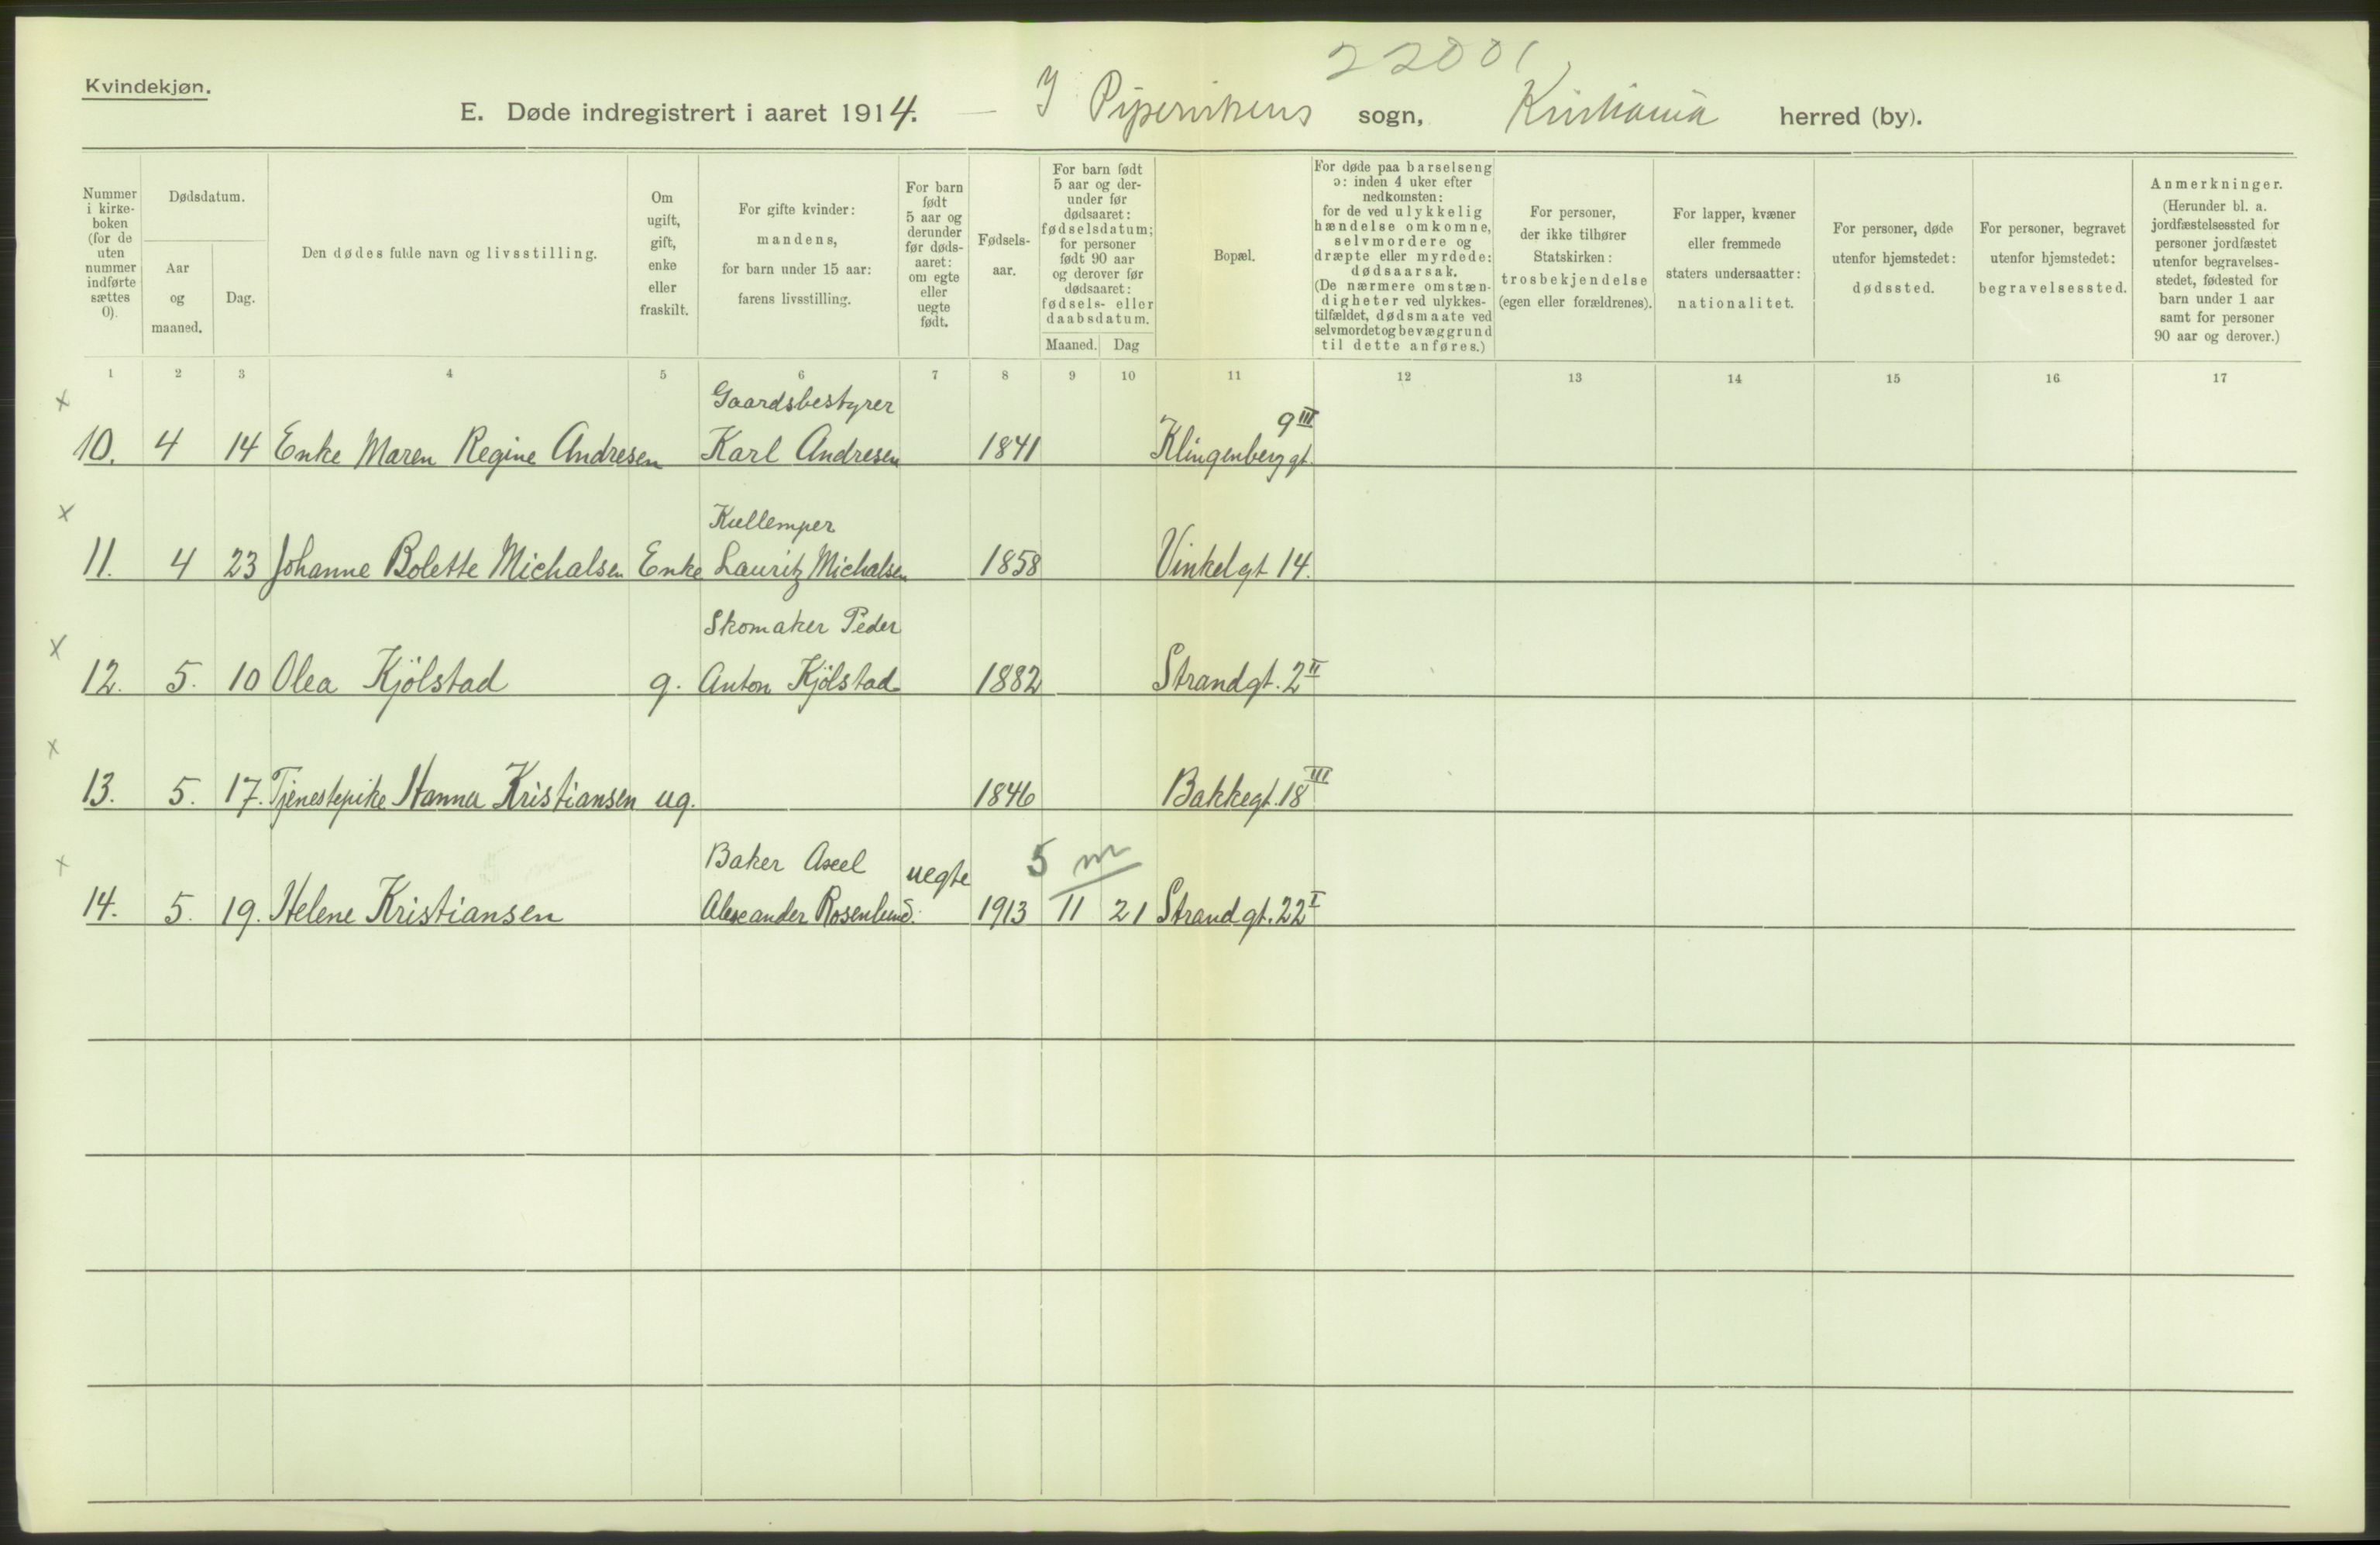 22001
Kvindekjøn.
E. Døde indregistrert i aaret 1914. — I Pipervikens sogn, Kristiania herred (by).
Nummer i kirke-boken (for de uten nummer indførte sættes 0).
Dødsdatum.
Aar og maaned.
Dag.
Den dødes fulde navn og livsstilling.
Om ugift, gift, enke eller fraskilt.
For gifte kvinder: mandens, for barn under 15 aar: farens livsstilling.
For barn født 5 aar og derunder før døds-aaret: om egte eller uegte født.
Fødsels-aar.
For barn født 5 aar og der-under før dødsaaret: fødselsdatum; for personer født 90 aar og derover før dødsaaret: fødsels- eller daabsdatum.
Maaned. Dag
Bopæl.
For døde paa barselseng ɔ: inden 4 uker efter nedkomsten: for de ved ulykkelig hændelse omkomne, selvmordere og dræpte eller myrdede: dødsaarsak. (De nærmere omstæn-digheter ved ulykkes-tilfældet, dødsmaate ved selvmordet og bevæggrund til dette anføres.)
For personer, der ikke tilhører Statskirken: trosbekjendelse (egen eller forældrenes).
For lapper, kvæner eller fremmede staters undersaatter: nationalitet.
For personer, døde utenfor hjemstedet: dødssted.
For personer, begravet utenfor hjemstedet: begravelsessted.
Anmerkninger. (Herunder bl. a. jordfæstelsessted for personer jordfæstet utenfor begravelses-stedet, fødested for barn under 1 aar samt for personer 90 aar og derover.)
1 2 3 4 5 6 7 8 9 10 11 12 13 14 15 16 17
x Gaardsbestyrer 9 III
10. 4 14 Enke Maren Regine Andresen Karl Andresen 1841 Klingenberg gt.
x Kullemper
11. 4 23 Johanne Bolette Michalsen Enke Lauritz Michalsen 1858 Vinkelgt 14.
x Skomaker Peder
12. 5. 10 Olea Kjölstad g. Anton Kjölstad 1882 Strandgt. 2 II
x
13. 5. 17. Tjenestepike Hanna Kristiansen ug. 1846 Bakkegt. 18 III
x Baker Axel uegte 5 m
14. 5. 19. Helene Kristiansen Alexander Rosenlund. 1913 11 21 Strandgt. 22 I